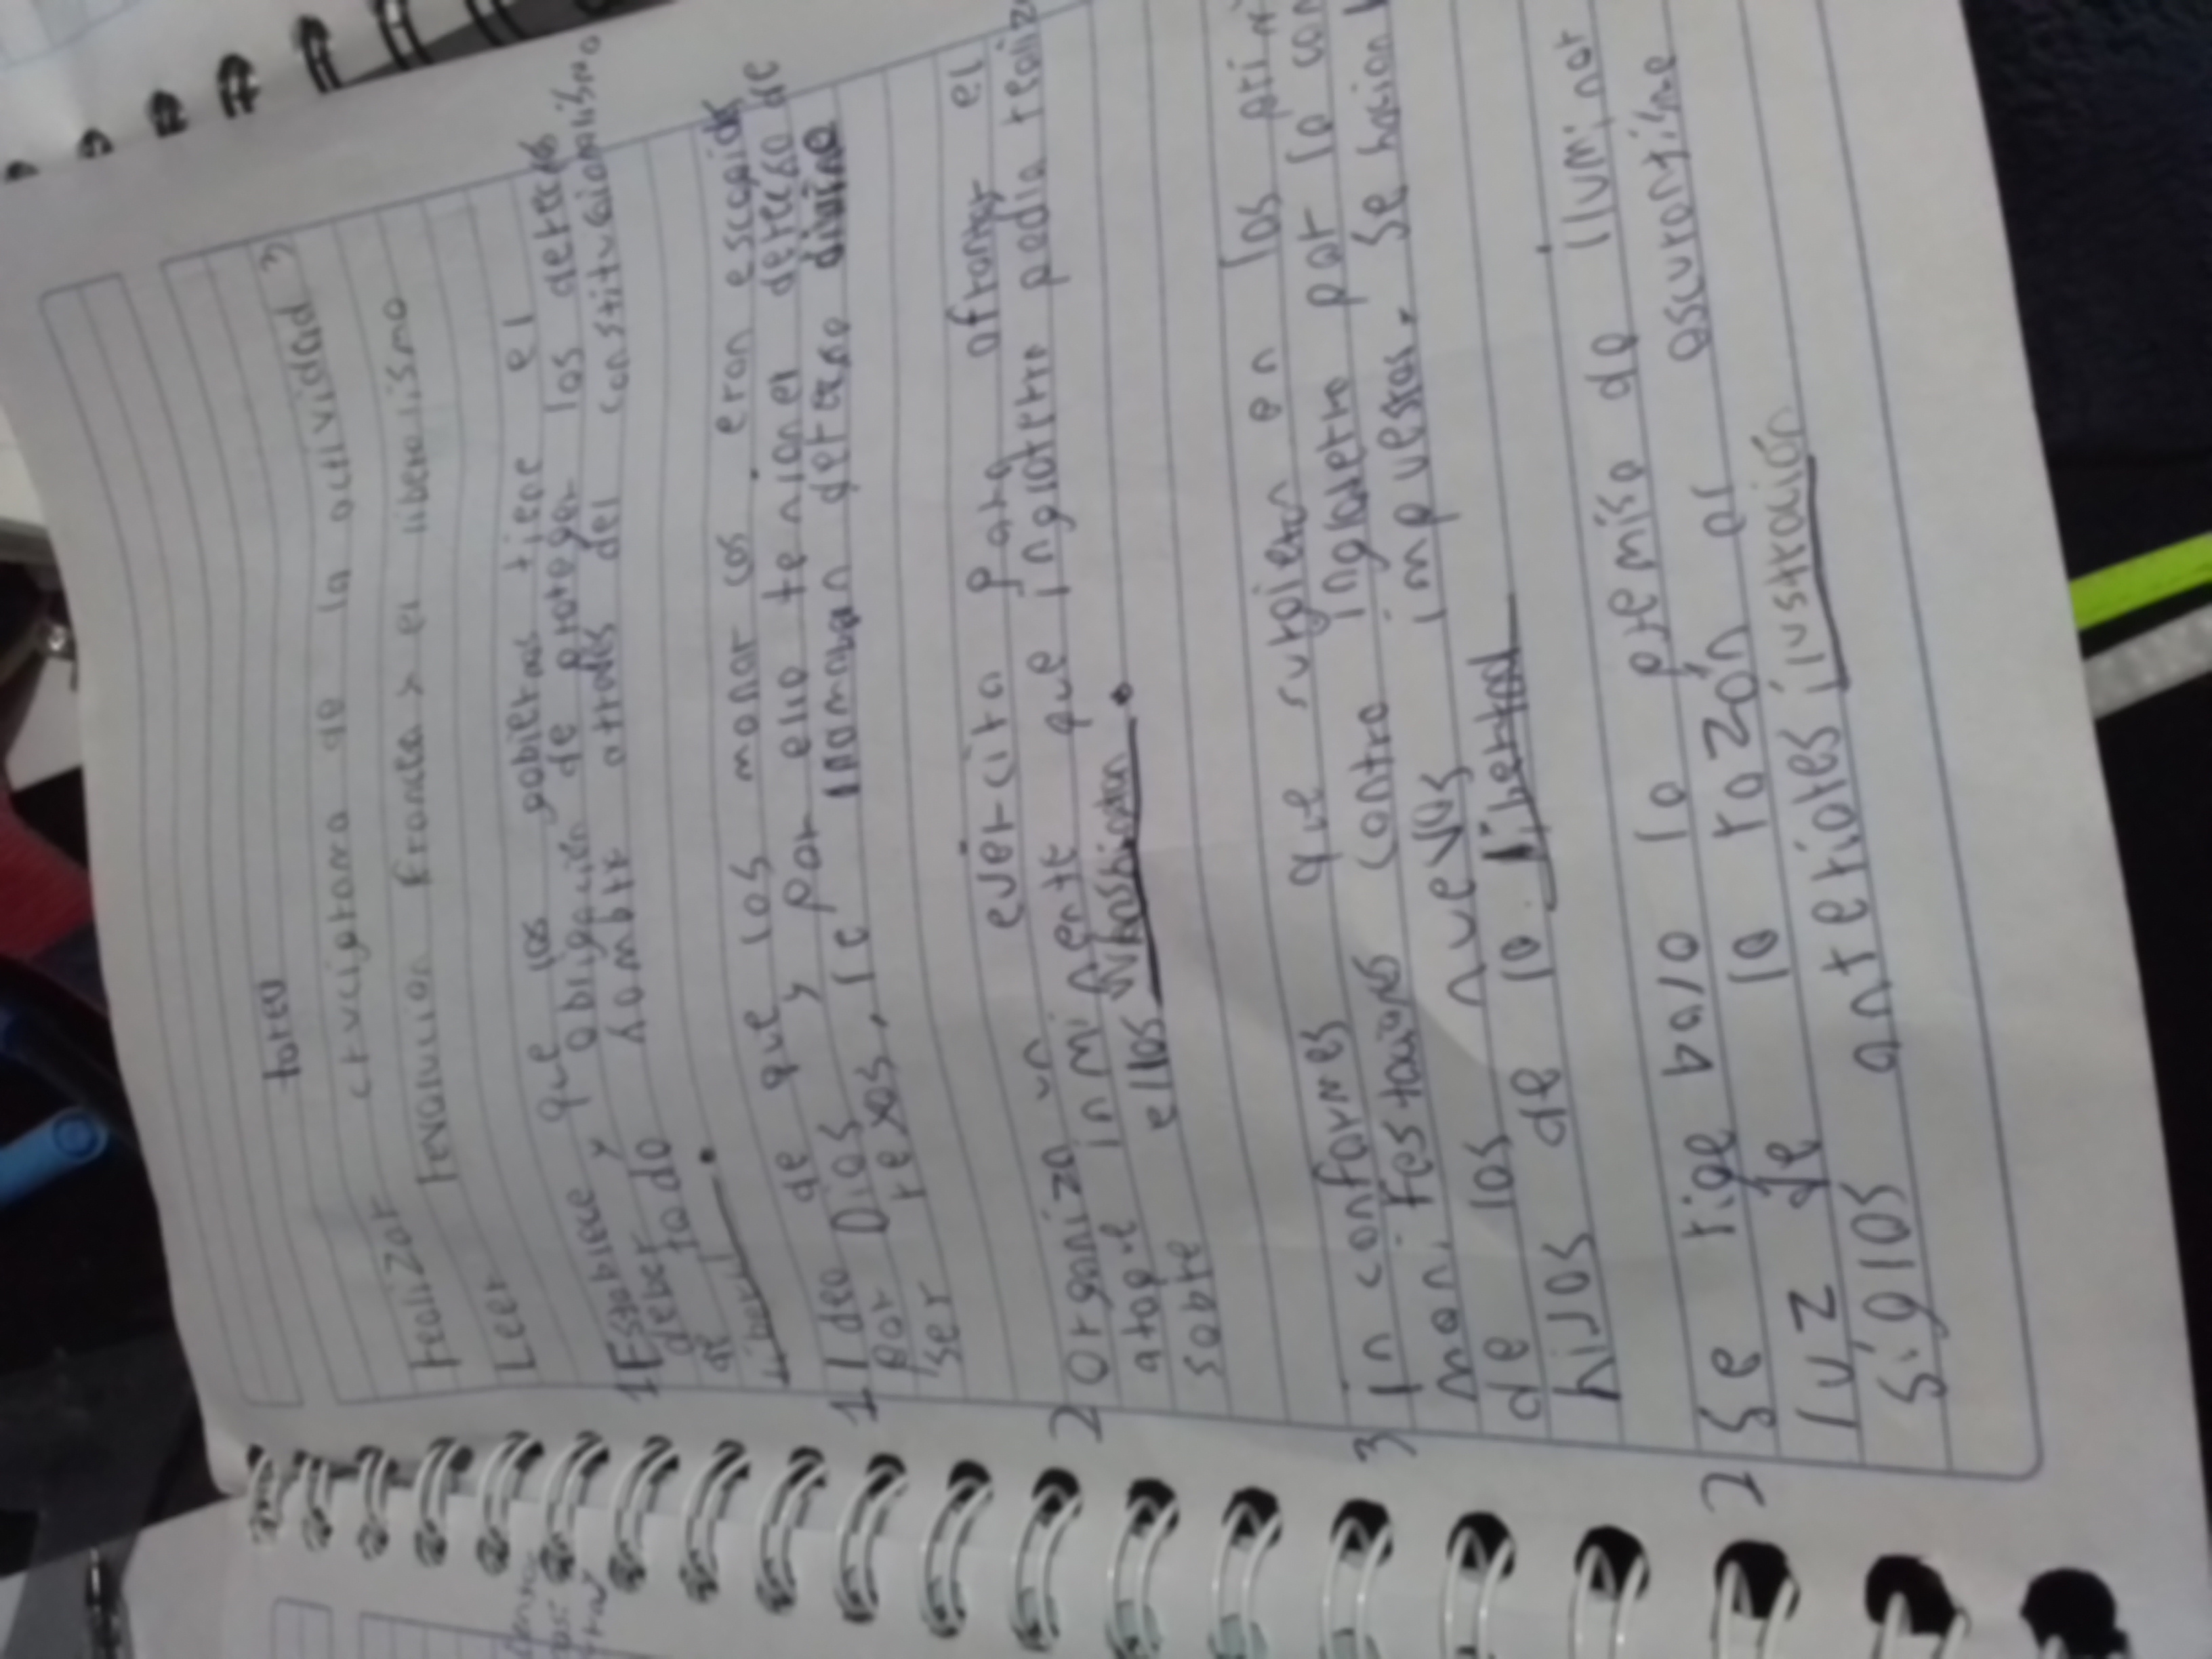 tarea
realizar crucigrama de la actividad 3
Leer revolucion francesa y el liberalismo
1 Establece que los gobiernos tiene el
deber y obligación de proteger los derechos
de todo hombre atraves del constitucionalismo
liberal.
1 Idea de que los monarcas eran escogidos
por Dios y por ello tenian el derecho de
ser reyes, le llamaban derecho divino
2 organiza un ejercito para afrontar el
ataque inminente que inglaterra pedia realiz
sobre ellos Whashington.
3 inconformes que surgieron en los prim
manifestaciones contra inglaterra por la con
de los nuevos impuestos. se hacian l
hijos de la libertad
2 se rige bajo la premisa de iluminar
luz de la razón el oscurantisme
siglos anteriores ilustración